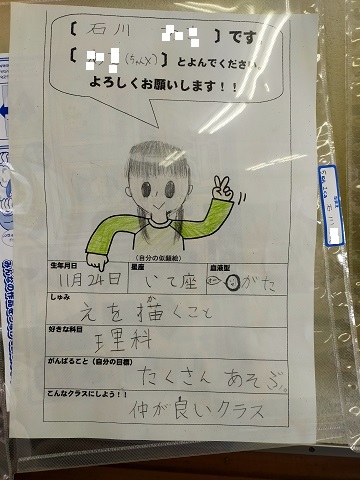 【 石川 】です。
【 (ちゃん×) 】とよんでください。
よろしくお願いします！！
(自分の似顔絵)
生年月日 星座 血液型
11月24日 いて座 Oがた
しゅみ
えを描くこと
か
好きな科目
理科
がんばること（自分の目標）
たくさん あそぶ。
こんなクラスにしよう！！
仲が良いクラス